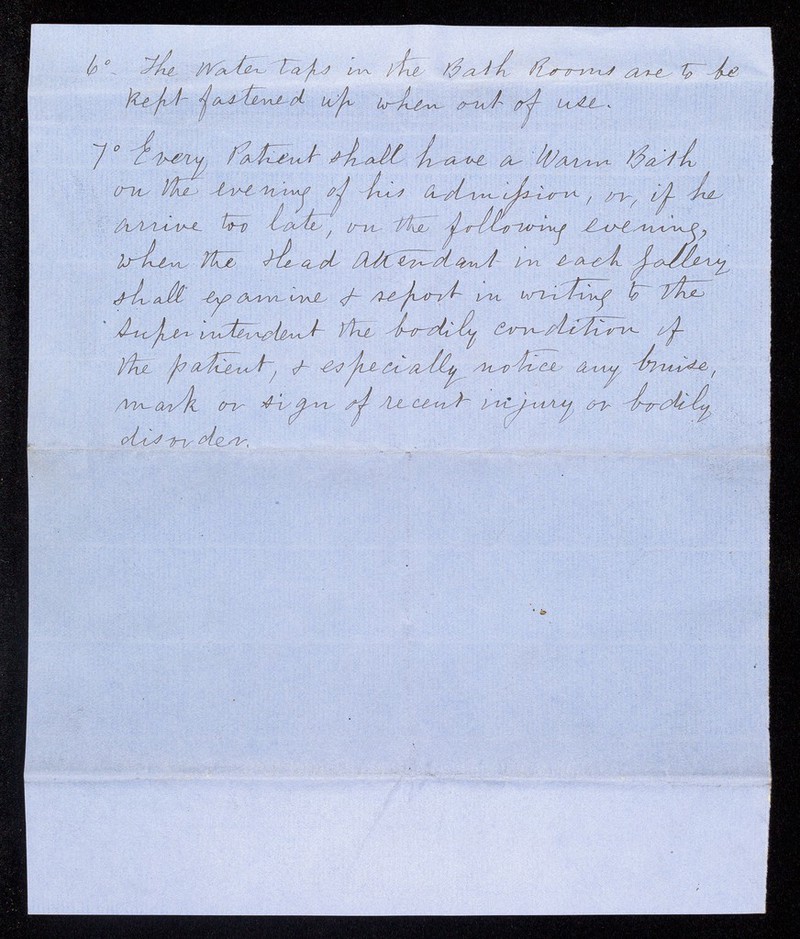 6° The Water taps in the Bath Rooms are to be
kept fastened up when out of use.
7° Every Patient shall have a Warm Bath
on the evening of his admission, or, if he
arrive too late, on the following evening,
when the Head Attendant in each Gallery
shall examine & report in writing to the
Superintendent the bodily condition of
the patient, & especially notice any bruise,
mark or sign of recent injury or bodily
disorder.